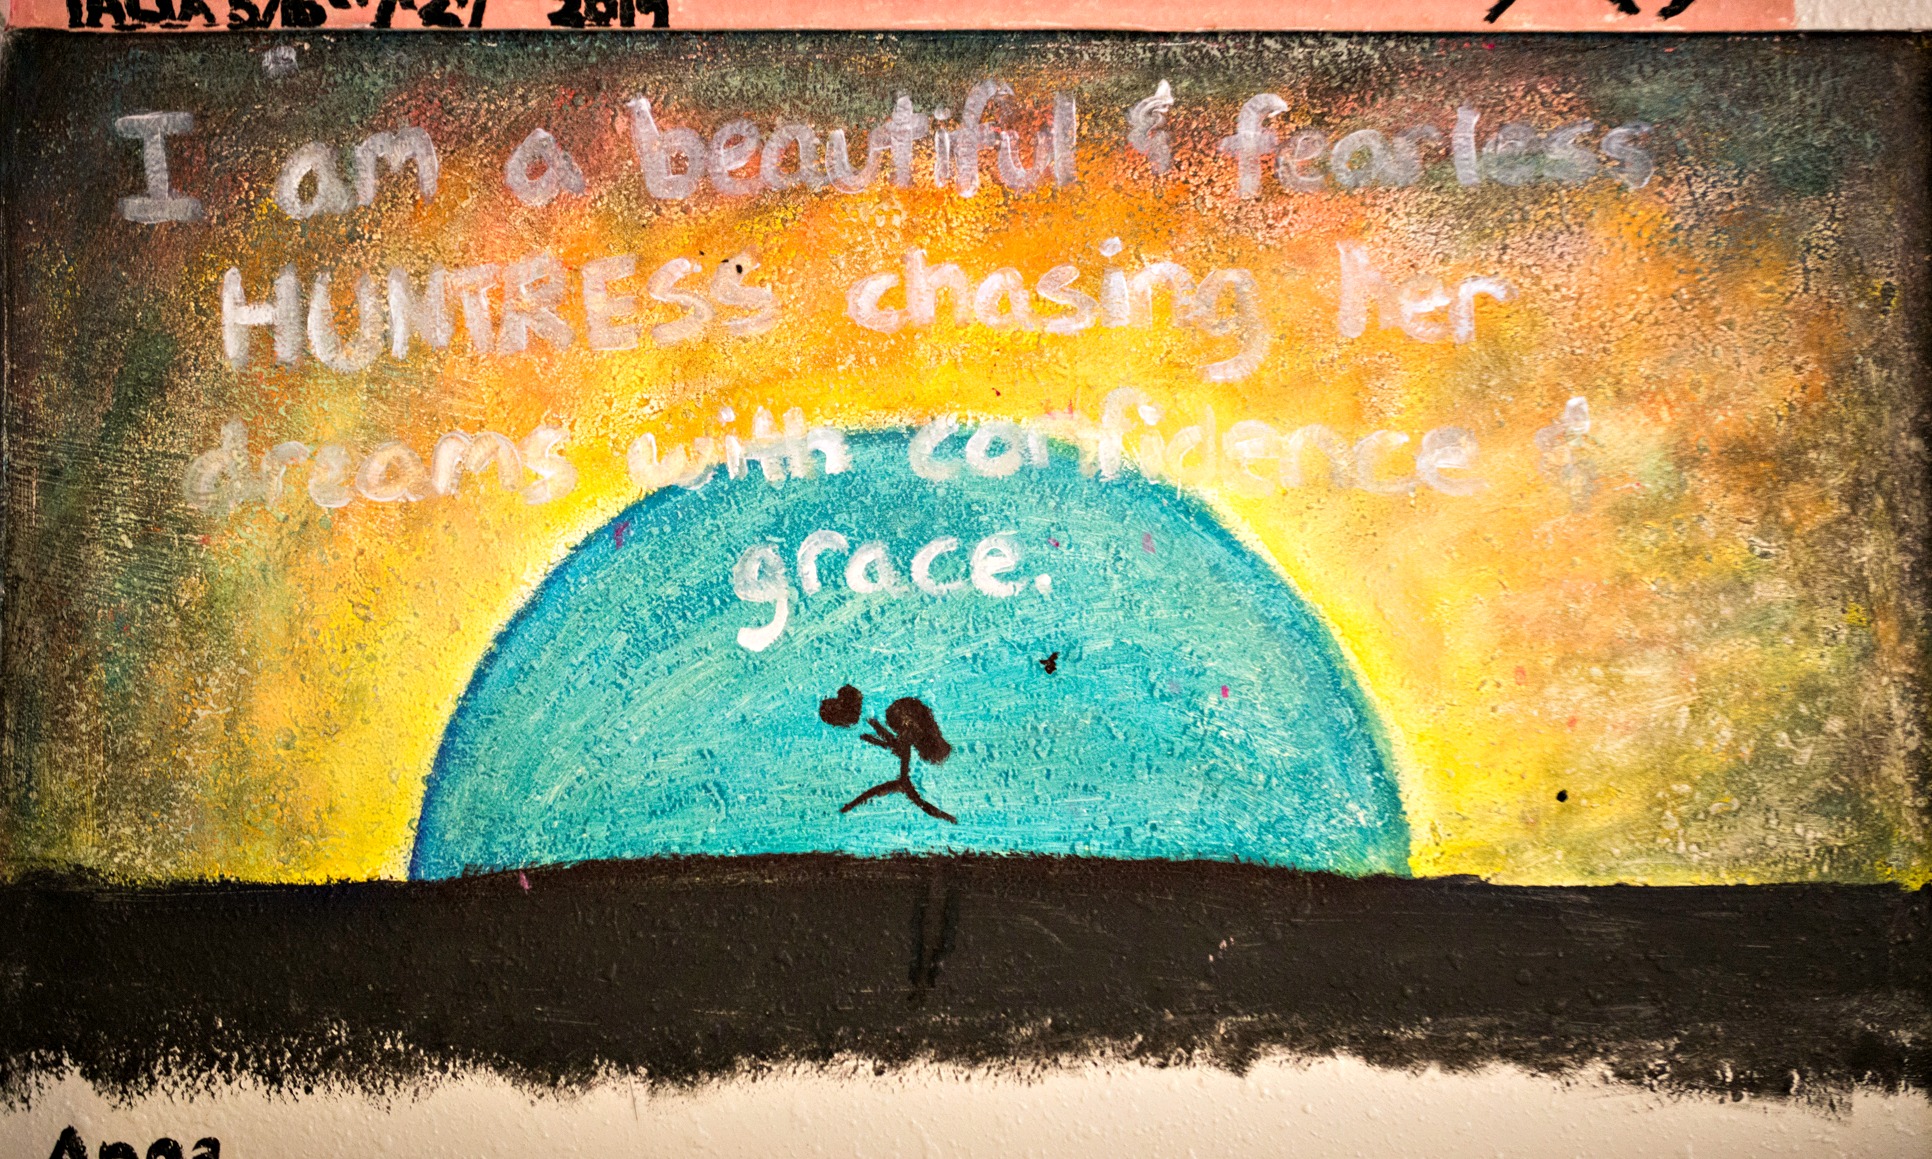 2019
I am a beautiful & fearless
HUNTRESS chasing her
dreams with confidence &
grace.
Anna